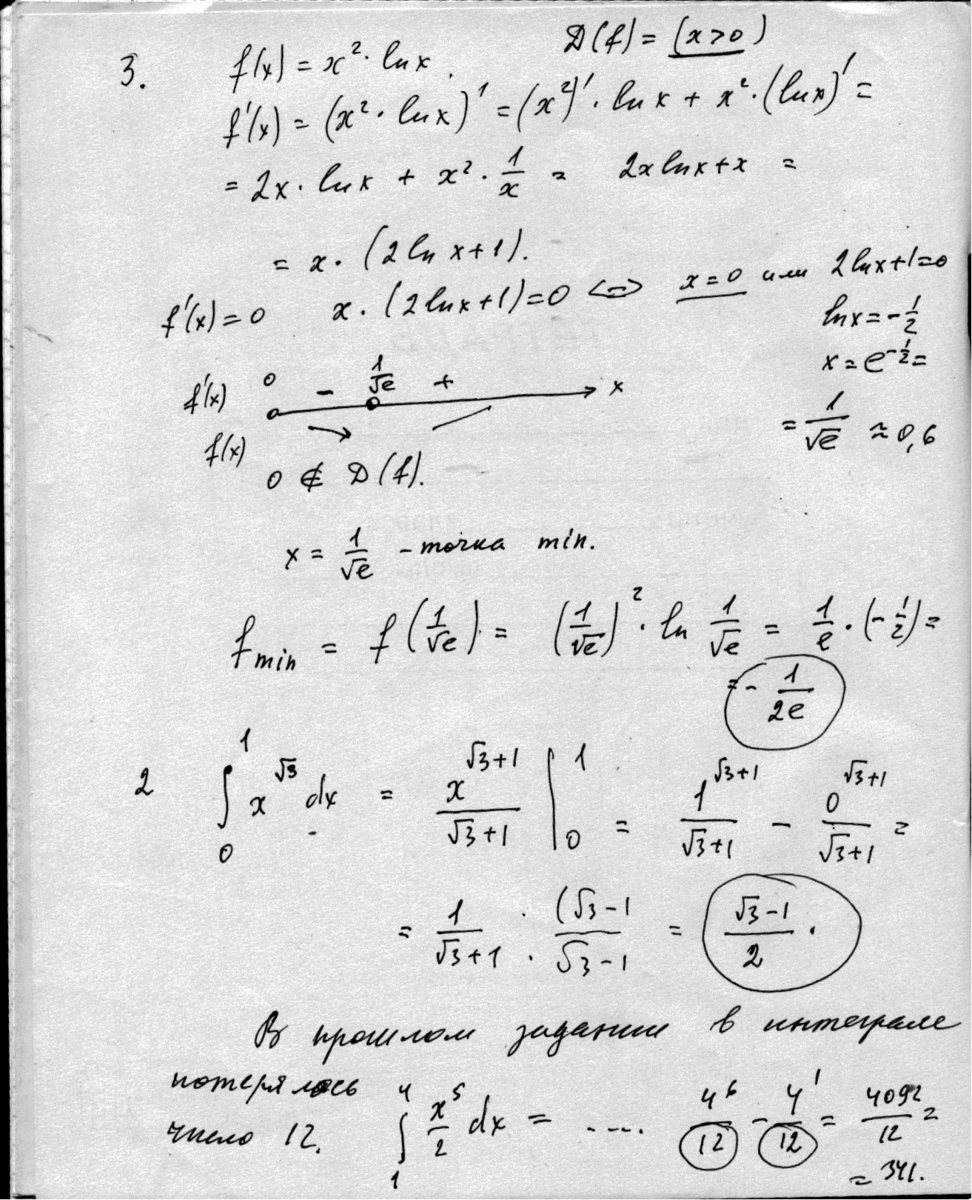 3. f(x) = x² · ln x. D(f) = (x>0)
f'(x) = (x² · ln x)' = (x²)' · ln x + x² · (ln x)' =
= 2x · ln x + x² · 1/x = 2x ln x + x =
= x · (2 ln x + 1).
f'(x) = 0 x · (2 ln x + 1) = 0 <=> x = 0 или 2 ln x + 1 = 0
ln x = - 1/2
x = e^(-1/2) =
= 1/√e ≈ 0,6
f'(x) 0 - 1/√e + x
f(x)
0 ∉ D(f).
x = 1/√e - точка min.
f min = f(1/√e) = (1/√e)² · ln 1/√e = 1/e · (-1/2) =
= - 1/2e
2 ∫₀¹ x^√3 dx = x^(√3+1)/(√3+1) |₀¹ = 1^(√3+1)/(√3+1) - 0^(√3+1)/(√3+1) =
= 1/(√3+1) · (√3-1/√3-1 = (√3-1)/2 .
В прошлом задании в интеграле
потерялось
число 12. ∫₁⁴ x⁵/2 dx = ..... 4⁶/12 - 4¹/12 = 4092/12 =
= 341.